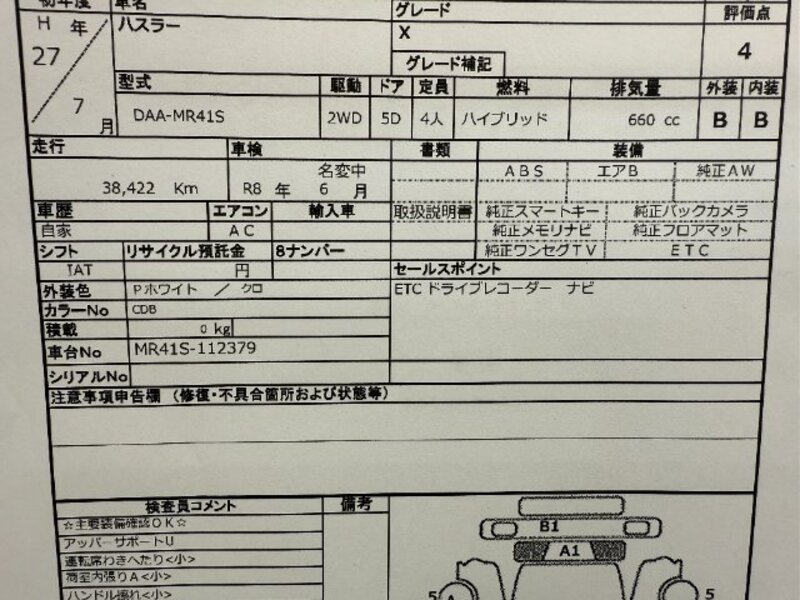 初年度 車名 グレード 評価点
H 年 ハスラー X
27 グレード補記 4
7 月
型式 駆動 ドア 定員 燃料 排気量 外装 内装
DAA-MR41S 2WD 5D 4人 ハイブリッド 660 cc B B
走行 車検 書類 装備
名変中 ABS エアB 純正AW
38,422 Km R8 年 6 月
車歴 エアコン 輸入車 取扱説明書 純正スマートキー 純正バックカメラ
自家 AC 純正メモリナビ 純正フロアマット
シフト リサイクル預託金 8ナンバー 純正ワンセグTV ETC
IAT 円 セールスポイント
外装色 Pホワイト ／ クロ ETC ドライブレコーダー ナビ
カラーNo CDB
積載 0 kg
車台No MR41S-112379
シリアルNo
注意事項申告欄 (修復・不具合箇所および状態等)
検査員コメント 備考
☆主要装備確認OK☆ B1
アッパーサポートU A1
運転席わきへたり<小>
荷室内張りA<小>
ハンドル擦れ<小> 5 A 5